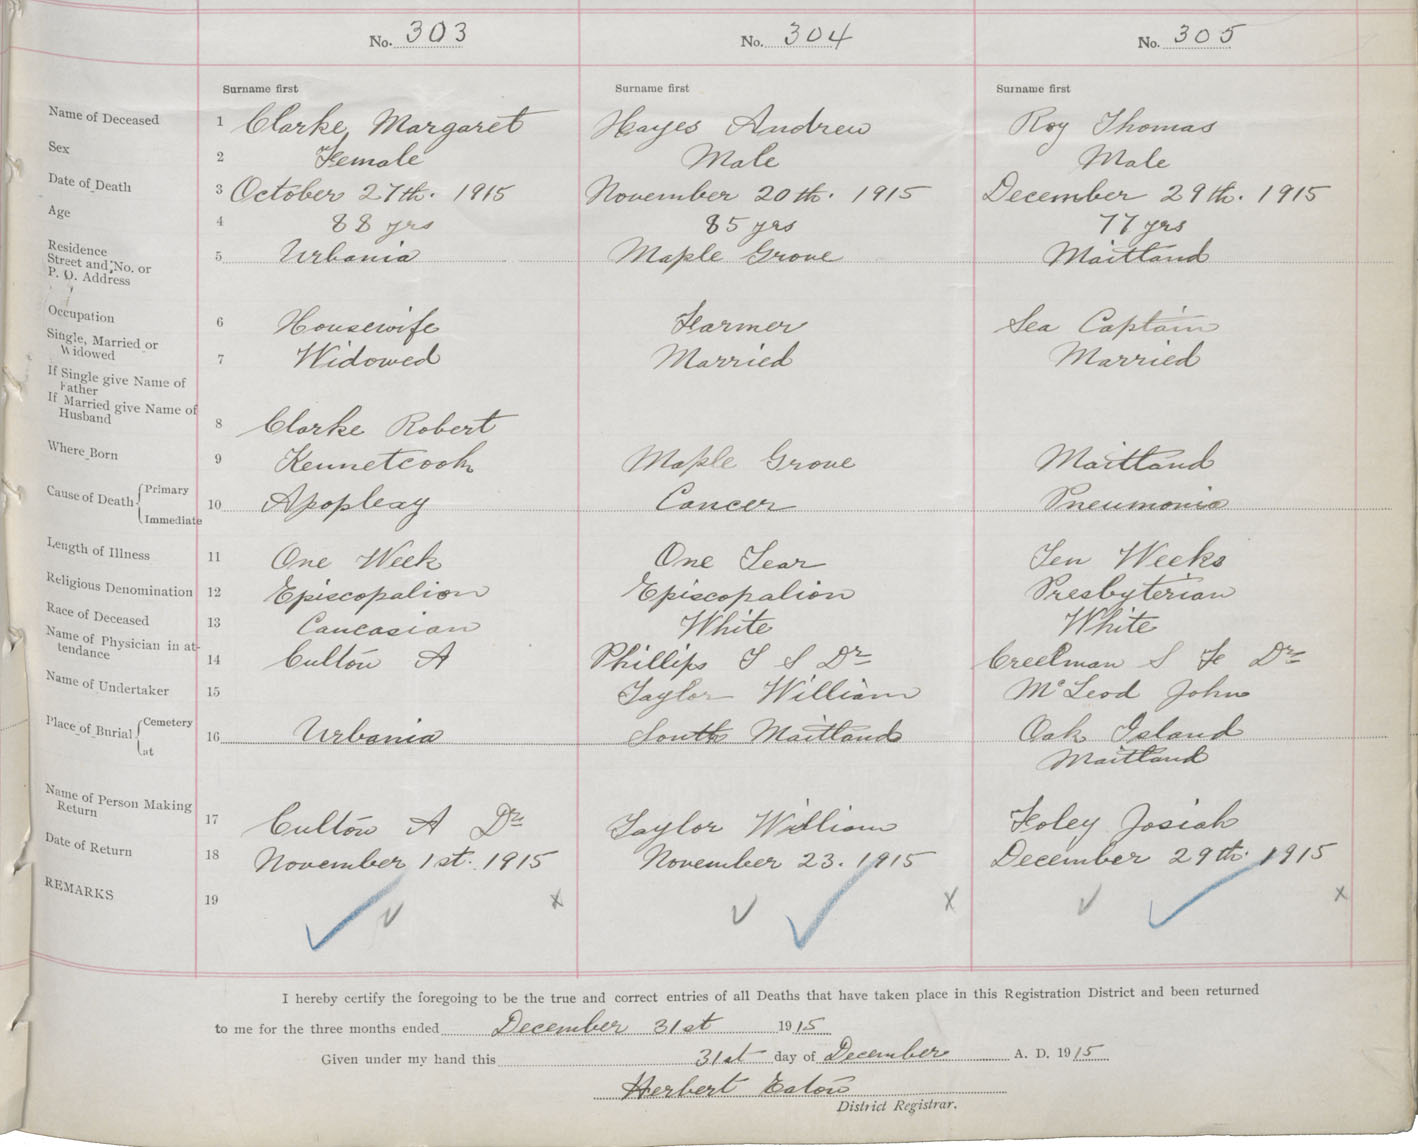 No. 303 No. 304 No. 305
Surname first Surname first Surname first
Name of Deceased 1 Clarke, Margaret Hayes Andrew Roy Thomas
Sex 2 Female Male Male
Date of Death 3 October 27th. 1915 November 20th. 1915 December 29th. 1915
Age 4 88 yrs 85 yrs 77 yrs
Residence
Street and No. or 5 Urbania Maple Grove Maitland
P. O. Address
Occupation 6 Housewife Farmer Sea Captain
Single, Married or
Widowed 7 Widowed Married Married
If Single give Name of
Father
If Married give Name of
Husband 8 Clarke Robert
Where Born 9 Kennetcook Maple Grove Maitland
Cause of Death { Primary
Immediate 10 Apoplexy Cancer Pneumonia
Length of Illness 11 One Week One Year Ten Weeks
Religious Denomination 12 Episcopalion Episcopalion Presbyterian
Race of Deceased 13 Caucasian White White
Name of Physician in at-
tendance 14 Culton A Phillips T S Dr Creelman S F Dr
Name of Undertaker 15 Taylor William McLeod John
Place of Burial { Cemetery
at 16 Urbania South Maitland Oak Island
Maitland
Name of Person Making
Return 17 Culton A Dr Taylor William Foley Josiah
Date of Return 18 November 1st. 1915 November 23. 1915 December 29th. 1915
REMARKS 19
I hereby certify the foregoing to be the true and correct entries of all Deaths that have taken place in this Registration District and been returned
to me for the three months ended December 31st 1915
Given under my hand this 31st day of December A. D. 1915
Herbert Eaton
District Registrar.